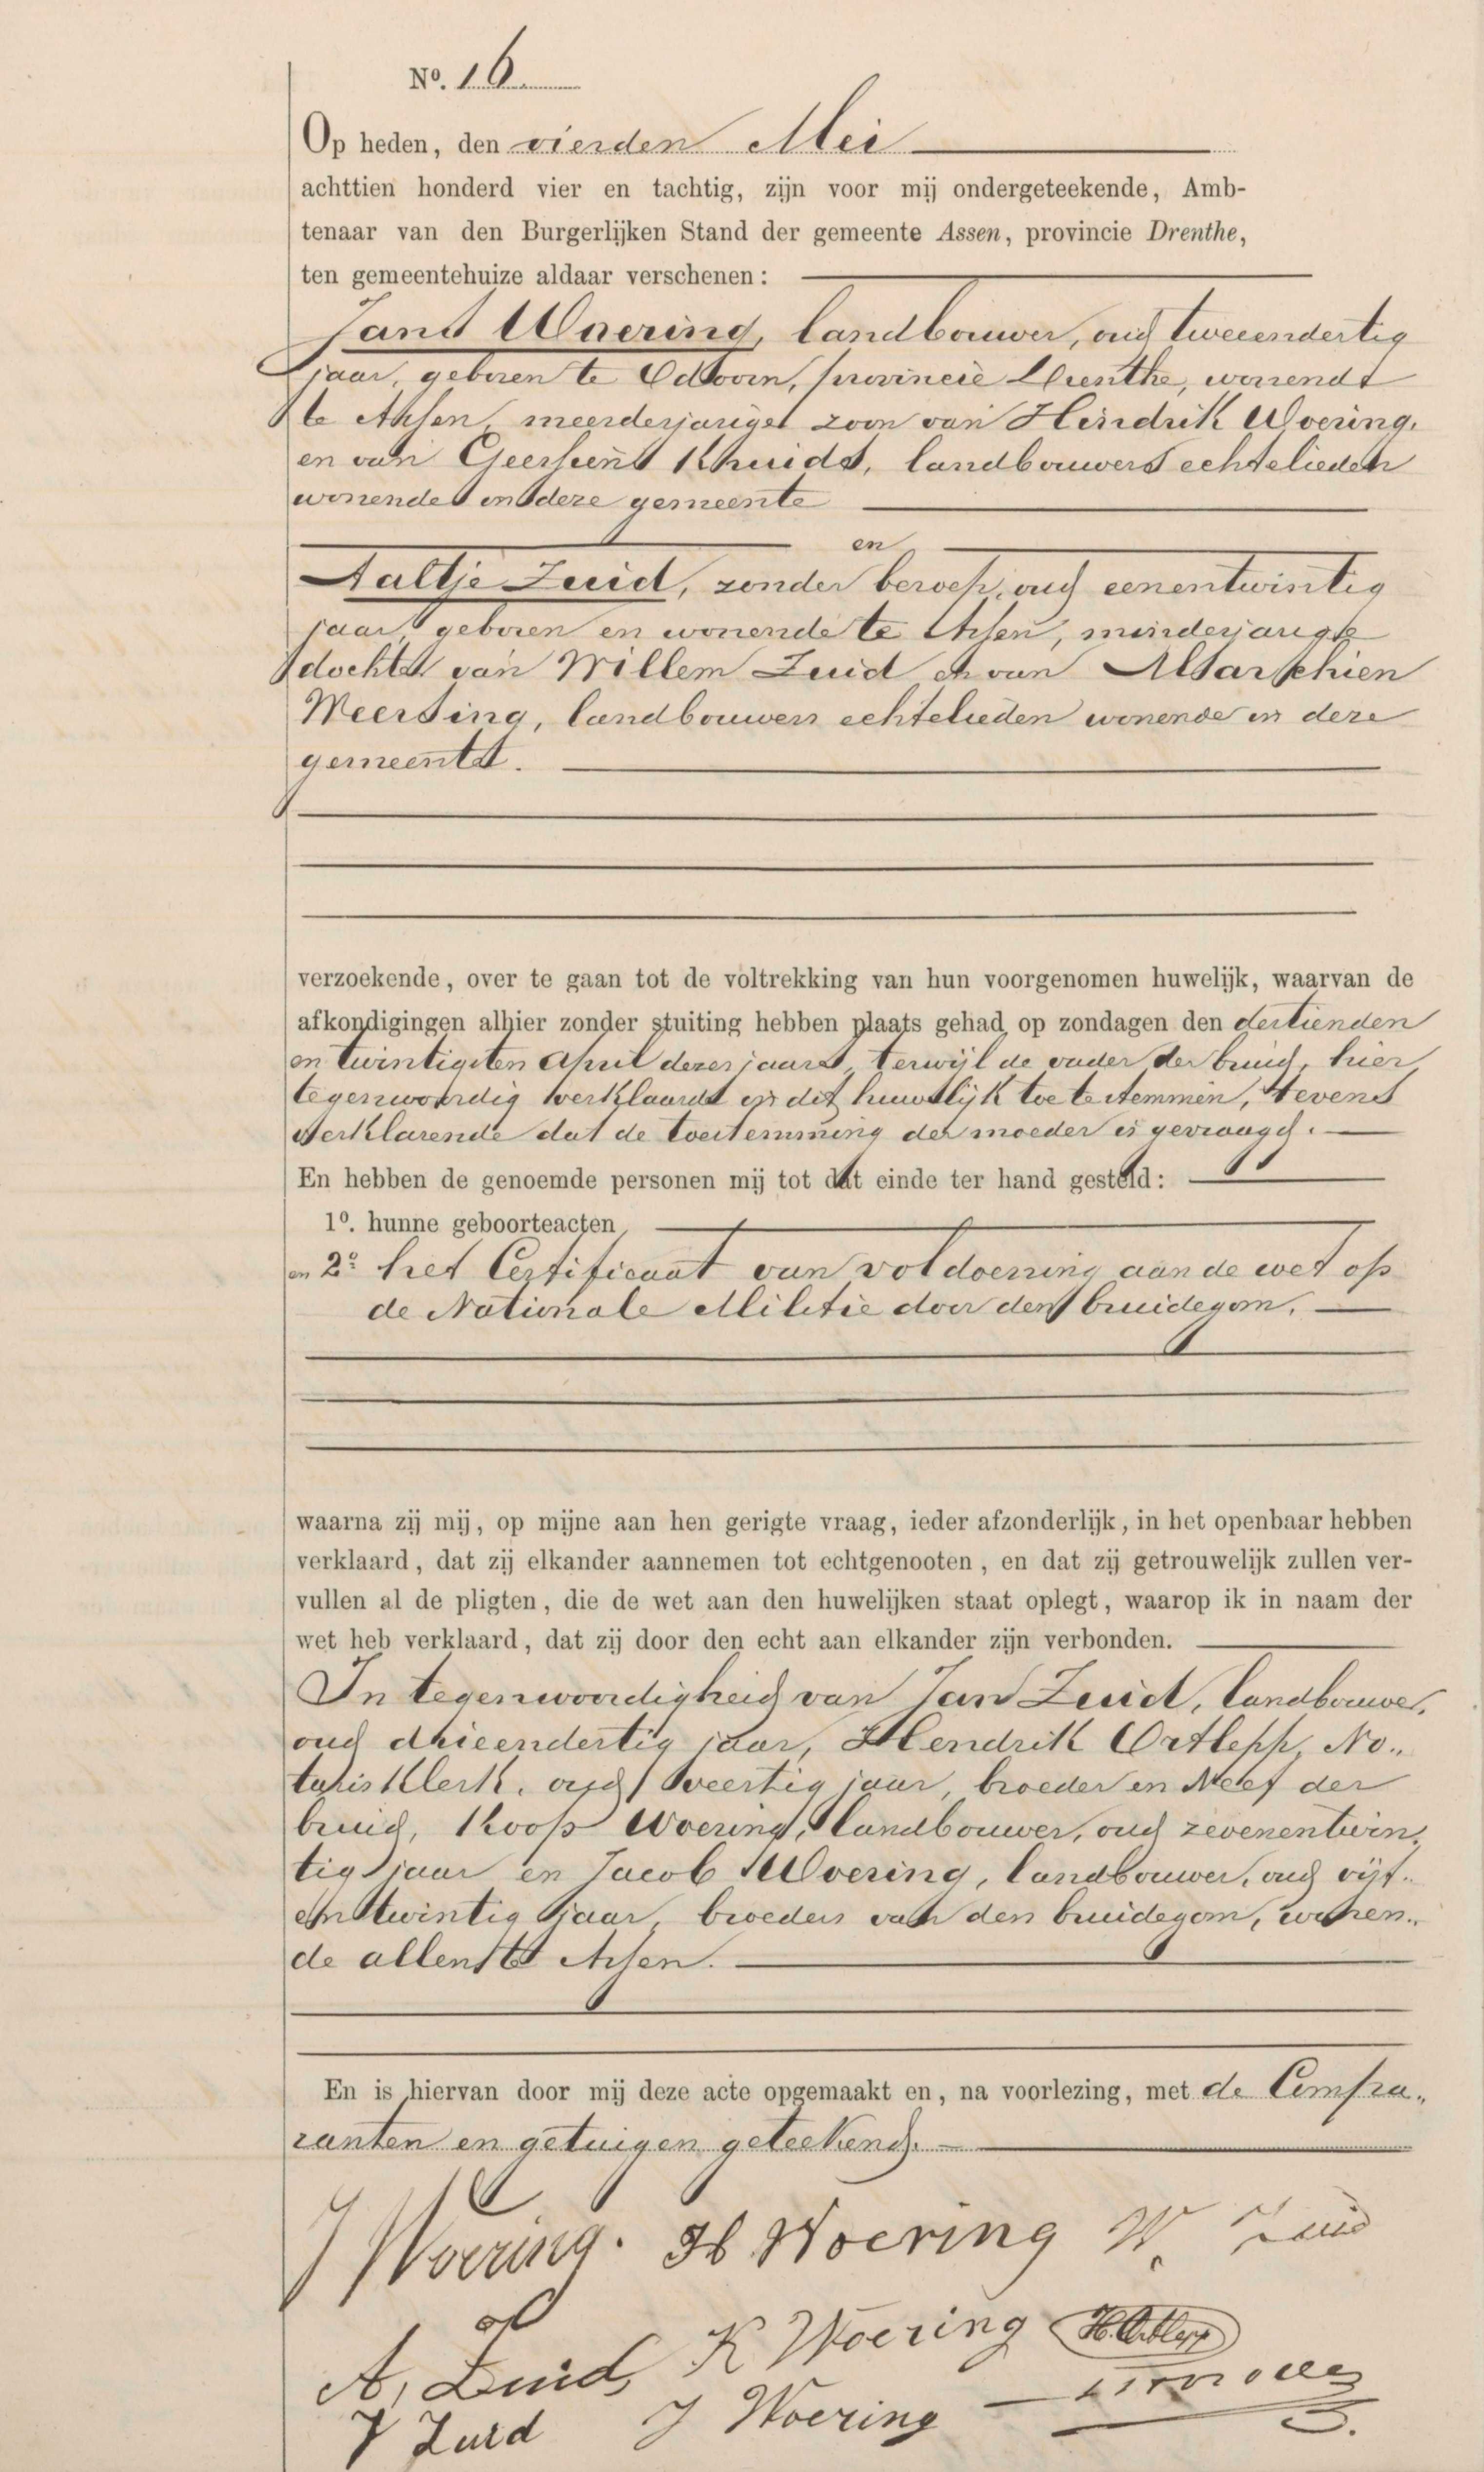 No. 16
Op heden, den vierden Mei
achttien honderd vier en tachtig, zijn voor mij ondergeteekende, Amb-
tenaar van den Burgerlijken Stand der gemeente Assen, provincie Drenthe,
ten gemeentehuize aldaar verschenen:
Jan Woering, landbouwer, oud tweeendertig
jaar, geboren te Odoorn, provincie Drenthe, wonende
te Assen, meerderjarige zoon van Hendrik Woering,
en van Geessien Kruids, landbouwers echtelieden
wonende in deze gemeente
en
Aaltje Zuid, zonder beroep, oud eenentwintig
jaar geboren en wonende te Assen, minderjarige
dochter van Willem Zuid en van Altarchien
Meersing, landbouwers echtelieden wonende in deze
gemeente.
verzoekende, over te gaan tot de voltrekking van hun voorgenomen huwelijk, waarvan de
afkondigingen alhier zonder stuiting hebben plaats gehad op zondagen den dertienden
en twintigsten April dezes jaars, terwijl de vader der bruid, hier
tegenwoordig verklaarde in dit huwelijk toe te stemmen, tevens
verklarende dat de toestemming der moeder is gevraagd.
En hebben de genoemde personen mij tot dat einde ter hand gesteld:
1o. hunne geboorteacten
en 2o het Certificaat van voldoening aan de wet op
de Nationale Militie door den bruidegom.
waarna zij mij, op mijne aan hen gerigte vraag, ieder afzonderlijk, in het openbaar hebben
verklaard, dat zij elkander aannemen tot echtgenooten, en dat zij getrouwelijk zullen ver-
vullen al de pligten, die de wet aan den huwelijken staat oplegt, waarop ik in naam der
wet heb verklaard, dat zij door den echt aan elkander zijn verbonden.
In tegenwoordigheid van Jan Zuid, landbouwer,
oud drieendertig jaar, Hendrik Ortlepp, No-
tarisklerk, oud veertig jaar, broeder en Neef der
bruid, Koop Woering, landbouwer, oud zevenentwin-
tig jaar en Jacob Woering, landbouwer, oud vijf-
entwintig jaar, broeders van den bruidegom, wonen-
de allen te Assen.
En is hiervan door mij deze acte opgemaakt en, na voorlezing, met de Compa-
ranten en getuigen geteekend.
J Woering. H Woering W. Zuid
A, Zuid K Woering H. Ortlepp
J Zuid J Woering